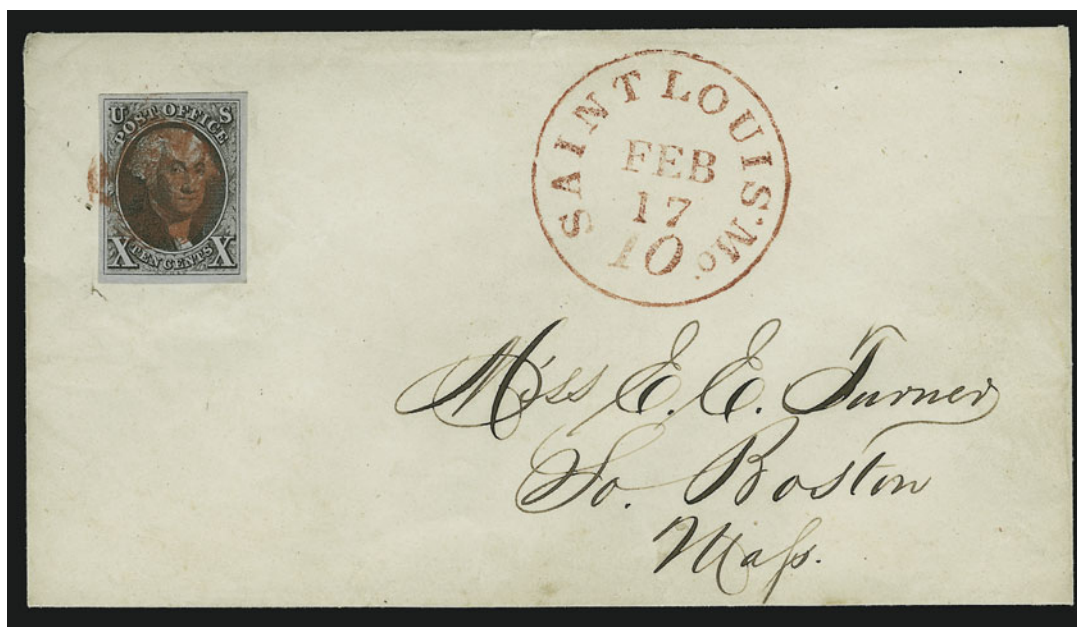 U S
POST OFFICE
X TEN CENTS X
SAINT LOUIS Mo.
FEB
17
10
Miss E. E. Turner
So. Boston
Mass.